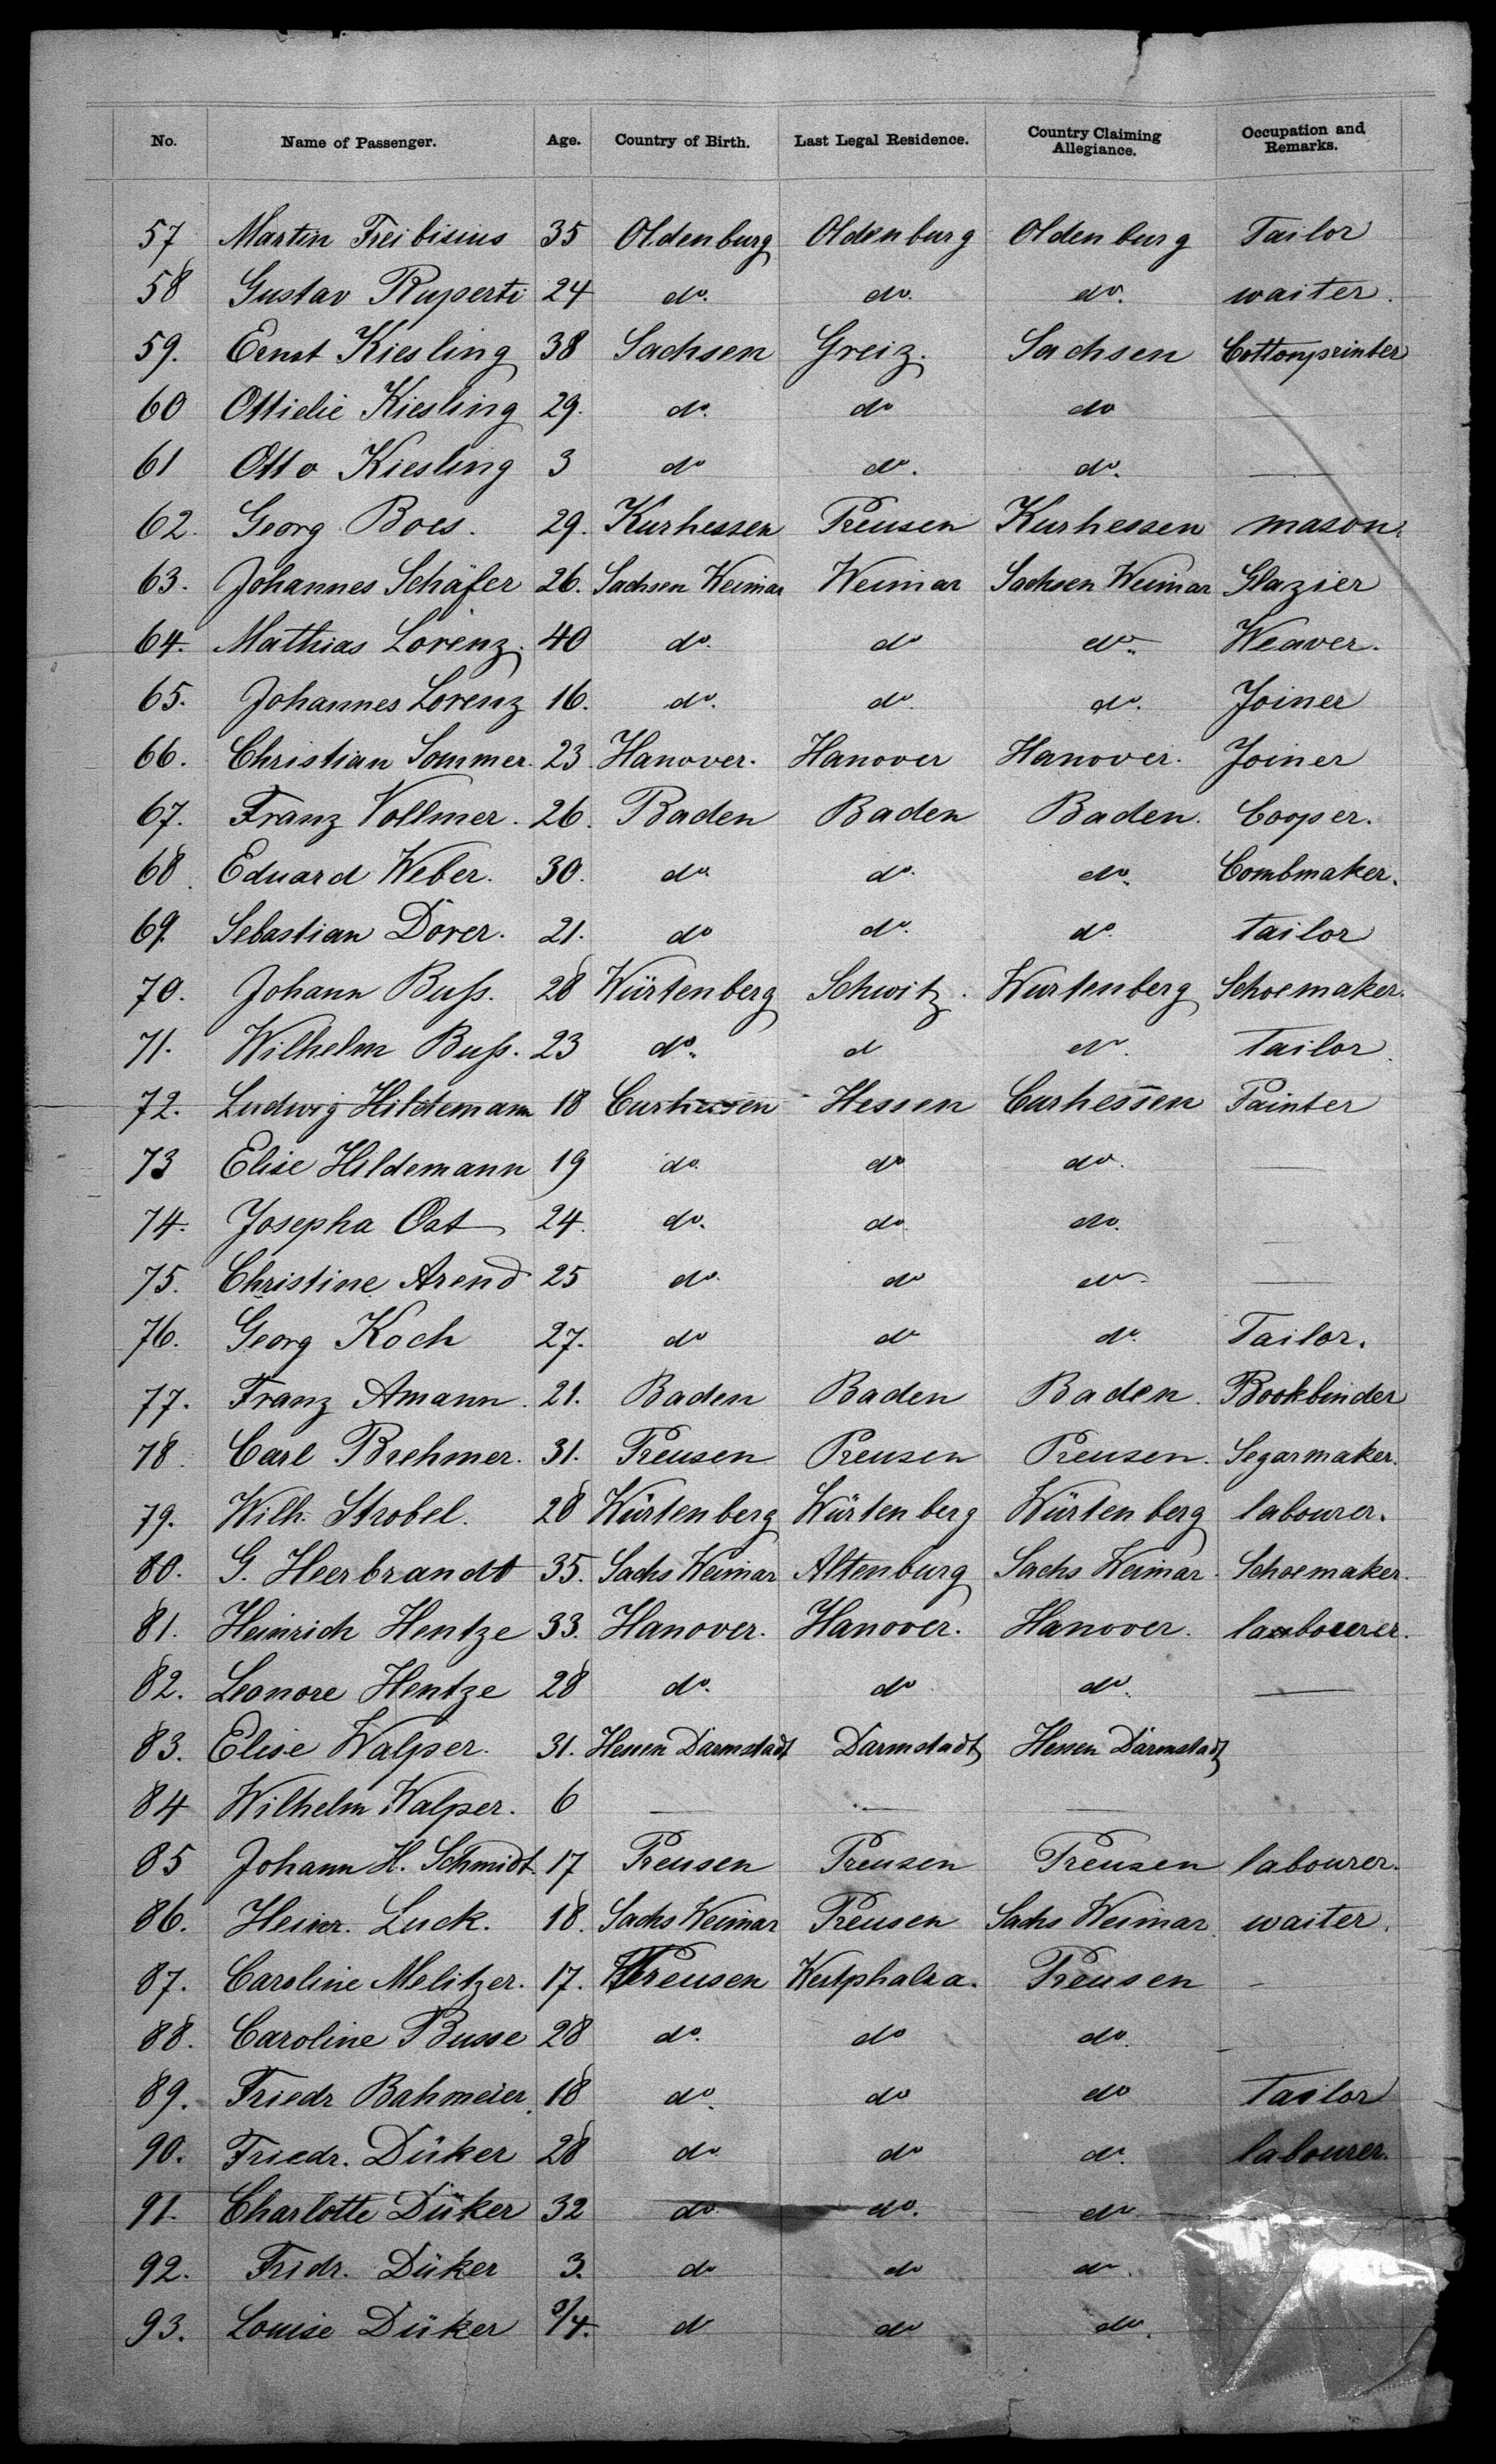 No. Name of Passenger. Age. Country of Birth. Last Legal Residence. Country Claiming Allegiance. Occupation and Remarks.
57 Martin Freibisius 35 Oldenburg Oldenburg Oldenburg Tailor
58 Gustav Ruperti 24 do. do. do. waiter.
59. Ernst Kiesling 38 Sachsen Greiz. Sachsen Cottonprinter
60 Ottielie Kiesling 29. do. do do —
61 Otto Kiesling 3 do do. do. —
62. Georg Boes. 29. Kurhessen Preusen Kurhessen mason.
63. Johannes Schäfer 26. Sachsen Weimar Weimar Sachsen Weimar Glazier
64. Mathias Lorenz. 40 do. do do. Weaver.
65. Johannes Lorenz 16. do. do. do. Joiner
66. Christian Sommer. 23. Hanover. Hanover Hanover. Joiner
67. Franz Vollmer. 26. Baden Baden Baden. Cooper.
68. Eduard Weber. 30. do. do. do. Combmaker.
69. Sebastian Dörer. 21. do do. do. tailor
70. Johann Buſs. 28 Würtenberg Schwitz. Wurtenberg Schoemaker.
71. Wilhelm Buſs. 23 do. d do. Tailor.
72. Ludwig Hildemann 18 Curhessen Hessen Curhessen Painter
73 Elise Hildemann 19 do. do do. —
74. Josepha Ost 24. do. do. do. —
75. Christine Arend 25 do. do do. —
76. Georg Koch 27. do do do. Tailor.
77. Franz Amann. 21. Baden Baden Baden. Bookbinder
78. Carl Brehmer. 31. Preusen Preusen Preusen. Segarmaker.
79. Wilh. Strobel. 28 Würtenberg Würtenberg Würtenberg labourer.
80. G. Heerbrandt 35. Sachs Weimar Altenburg Sachs Weimar. Schoemaker.
81. Heinrich Hentze 33. Hanover. Hanover. Hanover. labourer.
82. Leonore Hentze 28 do. do do. —
83. Elise Walper. 31. Hessen Darmstadt Darmstadt Hessen Darmstadt
84 Wilhelm Walper. 6 — — —
85 Johann H. Schmidt. 17 Preusen Preusen Preusen labourer.
86. Heinr. Luck. 18. Sachs Weimar Preusen Sachs Weimar. waiter.
87. Caroline Melitzer. 17. Preusen Westphalia. Preusen –
88. Caroline Busse 28 do. do do.
89. Friedr Bahmeier. 18 do. do do Tailor
90. Friedr. Düker 28 do. do do. labourer.
91. Charlotte Düker 32 do. do. do
92. Fridr. Düker 3. do do do.
93. Louise Düker ¾. d do do.